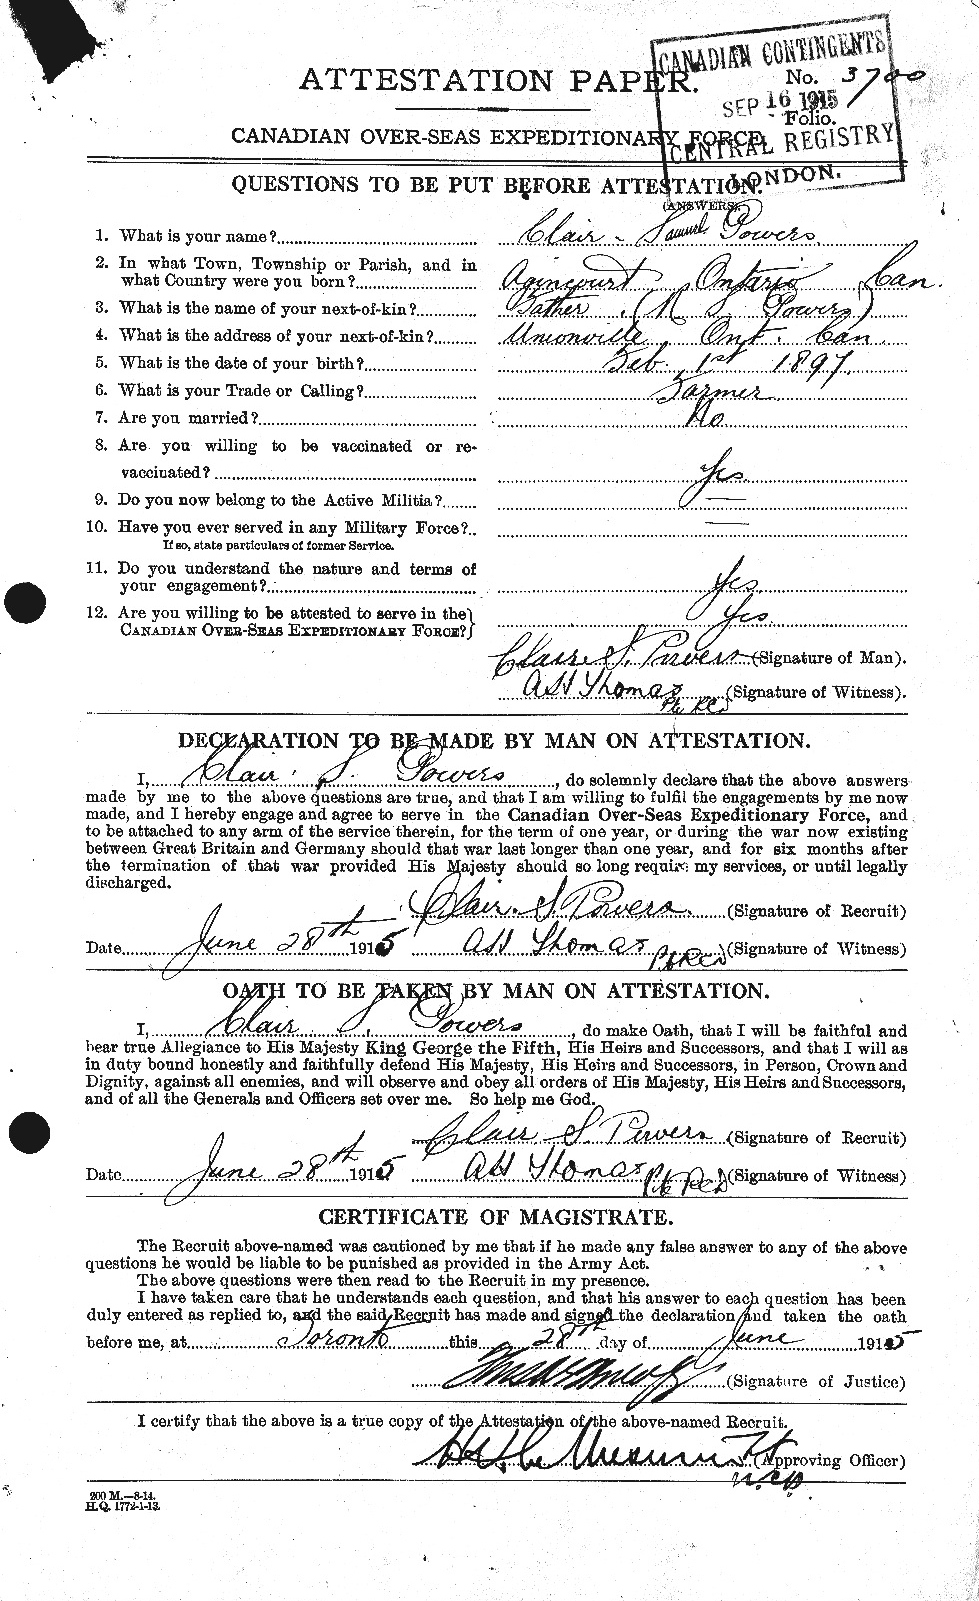 CANADIAN CONTINGENTS
ATTESTATION PAPER.
No. 3700
SEP 16 1915
Folio.
CANADIAN OVER-SEAS EXPEDITIONARY FORCE.
CENTRAL REGISTRY
LONDON.
QUESTIONS TO BE PUT BEFORE ATTESTATION.
(ANSWERS).
1. What is your name? Clair - Samuel Powers
2. In what Town, Township or Parish, and in
what Country were you born? Agincourt Ontario Can.
3. What is the name of your next-of-kin? Father. ( Powers)
4. What is the address of your next-of-kin? Unionville, Ont. Can.
5. What is the date of your birth? Feb. 1st 1897.
6. What is your Trade or Calling? Farmer
7. Are you married? No
8. Are you willing to be vaccinated or re-
vaccinated? Yes.
9. Do you now belong to the Active Militia? —
10. Have you ever served in any Military Force? —
If so, state particulars of former Service.
11. Do you understand the nature and terms of
your engagement? Yes.
12. Are you willing to be attested to serve in the
CANADIAN OVER-SEAS EXPEDITIONARY FORCE? Yes.
Clair S. Powers (Signature of Man).
Thomas Pte RCD (Signature of Witness).
DECLARATION TO BE MADE BY MAN ON ATTESTATION.
I, Clair S. Powers, do solemnly declare that the above answers
made by me to the above questions are true, and that I am willing to fulfil the engagements by me now
made, and I hereby engage and agree to serve in the Canadian Over-Seas Expeditionary Force, and
to be attached to any arm of the service therein, for the term of one year, or during the war now existing
between Great Britain and Germany should that war last longer than one year, and for six months after
the termination of that war provided His Majesty should so long require my services, or until legally
discharged.
Clair. S Powers. (Signature of Recruit)
Date June 28th 1915 Thomas Pte RCD (Signature of Witness)
OATH TO BE TAKEN BY MAN ON ATTESTATION.
I, Clair S. Powers, do make Oath, that I will be faithful and
bear true Allegiance to His Majesty King George the Fifth, His Heirs and Successors, and that I will as
in duty bound honestly and faithfully defend His Majesty, His Heirs and Successors, in Person, Crown and
Dignity, against all enemies, and will observe and obey all orders of His Majesty, His Heirs and Successors,
and of all the Generals and Officers set over me. So help me God.
Clair S Powers (Signature of Recruit)
Date June 28th 1915 Thomas Pte RCD (Signature of Witness)
CERTIFICATE OF MAGISTRATE.
The Recruit above-named was cautioned by me that if he made any false answer to any of the above
questions he would be liable to be punished as provided in the Army Act.
The above questions were then read to the Recruit in my presence.
I have taken care that he understands each question, and that his answer to each question has been
duly entered as replied to, and the said Recruit has made and signed the declaration and taken the oath
before me, at Toronto this 28th day of June 1915
(Signature of Justice)
I certify that the above is a true copy of the Attestation of the above-named Recruit.
(Approving Officer)
200 M.—8-14.
H.Q. 1772-1-13.